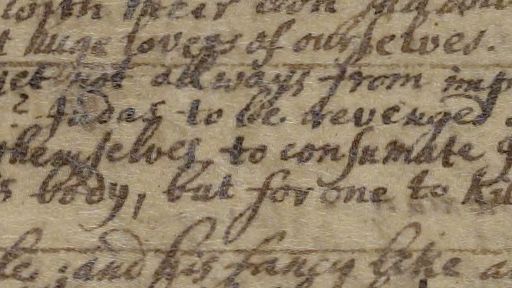 with their own
t huge lovers of ourselves.
yet not allways from imp
Judas to be revenged
themselves, to consumate
s body, but for one to kil
ke, and his fancy like a